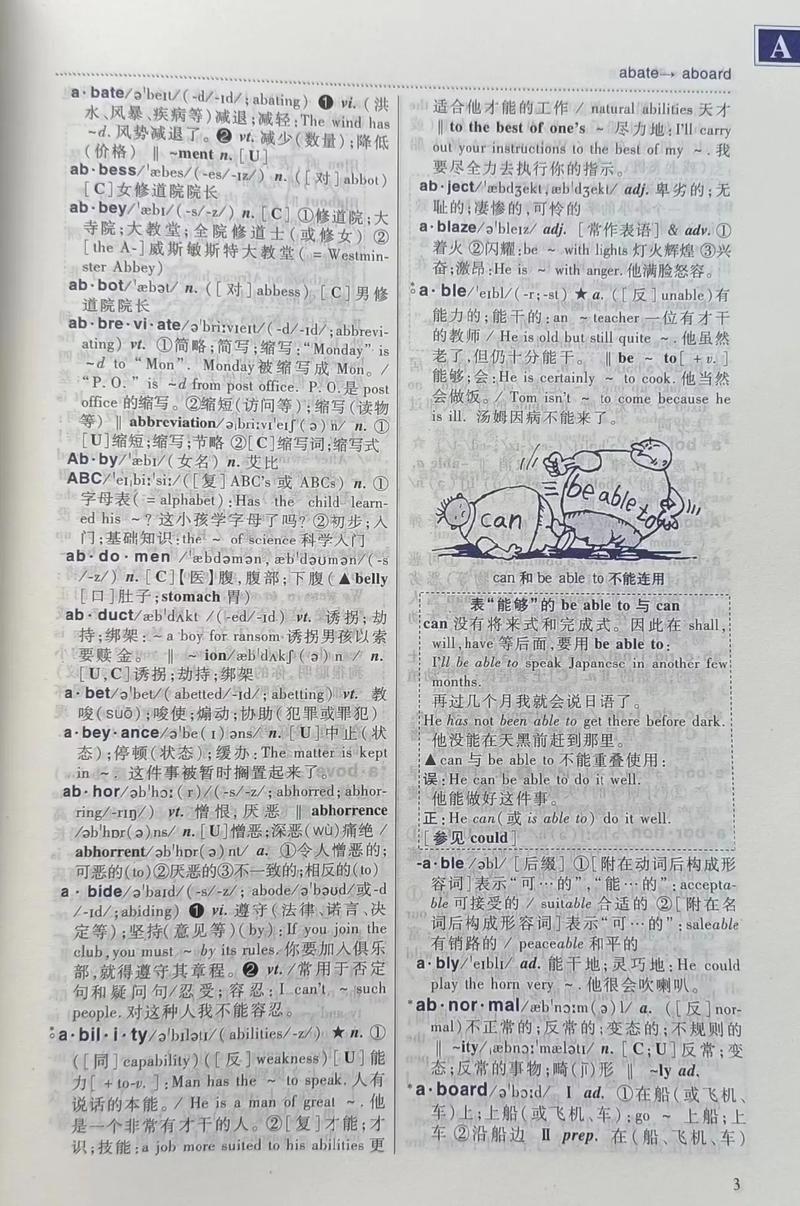 A
abate→ aboard
a·bate/ə'beɪt/(-d/-ɪd/;abating) ❶ vi. (洪
水、风暴、疾病等)减退;减轻:The wind has
~d. 风势减退了。❷ vt. 减少(数量);降低
(价格) ‖ ~ment n. [U]
ab·bess/'æbes/(-es/-ɪz/) n. ([对]abbot)
[C]女修道院院长
ab·bey/'æbɪ/(-s/-z/) n. [C] ①修道院;大
寺院;大教堂;全院修道士(或修女) ②
[the A-]威斯敏斯特大教堂(=Westmin-
ster Abbey)
ab·bot/'æbət/ n. ([对]abbess)[C]男修
道院院长
ab·bre·vi·ate/ə'briːvɪeɪt/(-d/-ɪd/;abbrevi-
ating) vt. ①简略;简写;缩写:“Monday” is
~d to “Mon”. Monday被缩写成 Mon。/
“P. O.” is ~d from post office. P. O.是post
office 的缩写。②缩短(访问等);缩写(读物
等) ‖ abbreviation/əˌbriːvɪ'eɪʃ(ə)n/ n. ①
[U]缩短;缩写;节略 ②[C]缩写词;缩写式
Ab·by/'æbɪ/(女名) n. 艾比
ABC/'eɪbiː'siː/([复]ABC's 或 ABCs) n. ①
字母表(=alphabet):Has the child learn-
ed his ~? 这小孩学字母了吗? ②初步;入
门;基础知识:the ~ of science 科学入门
ab·do·men /'æbdəmən, æb'dəʊmən/(-s
/-z/) n. [C]【医】腹,腹部;下腹(▲belly
[口]肚子;stomach 胃)
ab·duct/æb'dʌkt /(-ed/-ɪd) vt. 诱拐;劫
持;绑架:~ a boy for ransom 诱拐男孩以索
要赎金。 ‖ ~ion/æb'dʌkʃ(ə)n / n.
[U,C]诱拐;劫持;绑架
a·bet/ə'bet/(abetted/-ɪd/;abetting) vt. 教
唆(suō);唆使;煽动;协助(犯罪或罪犯)
a·bey·ance/ə'be(ɪ)əns/n. [U]中止(状
态);停顿(状态);缓办:The matter is kept
in ~. 这件事被暂时搁置起来了。
ab·hor/əb'hɔː(r)/(-s/-z/;abhorred;abhor-
ring/-rɪŋ/) vt. 憎恨,厌恶 ‖ abhorrence
/əb'hɒr(ə)ns/ n. [U]憎恶;深恶(wù)痛绝 /
abhorrent/əb'hɒr(ə)nt/ a. ①令人憎恶的;
可恶的(to)②厌恶的③不一致的;相反的(to)
a·bide/ə'baɪd/(-s/-z/; abode/ə'bəʊd/或-d
/-ɪd/;abiding) ❶ vi. 遵守(法律、诺言、决
定等);坚持(意见等)(by):If you join the
club,you must ~ by its rules. 你要加入俱乐
部,就得遵守其章程。❷ vt./常用于否定
句和疑问句/忍受;容忍:I can't ~ such
people. 对这种人我不能容忍。
a·bil·i·ty/ə'bɪlətɪ/(abilities/-z/) ★ n. ①
([同]capability)([反]weakness)[U]能
力[+to-v.]:Man has the ~ to speak. 人有
说话的本能。/ He is a man of great ~. 他
是一个非常有才干的人。②[复]才能;才
识;技能:a job more suited to his abilities 更
适合他才能的工作 / natural abilities 天才
‖ to the best of one's ~ 尽力地:I'll carry
out your instructions to the best of my ~. 我
要尽全力去执行你的指示。
ab·ject/'æbdʒekt,æb'dʒekt/ adj. 卑劣的;无
耻的;凄惨的,可怜的
a·blaze/ə'bleɪz/ adj. [常作表语] & adv. ①
着火 ②闪耀:be ~ with lights 灯火辉煌 ③兴
奋;激昂:He is ~ with anger. 他满脸怒容。
a·ble/'eɪbl/(-r;-st) ★ a. ([反]unable)有
能力的;能干的:an ~ teacher 一位有才干
的教师 / He is old but still quite ~. 他虽然
老了,但仍十分能干。 ‖ be ~ to[+v.]
能够;会:He is certainly ~ to cook. 他当然
会做饭。/ Tom isn't ~ to come because he
is ill. 汤姆因病不能来了。
can
be able to
can 和 be able to 不能连用
表“能够”的 be able to 与 can
can 没有将来式和完成式。因此在 shall,
will,have 等后面,要用 be able to:
I'll be able to speak Japanese in another few
months.
再过几个月我就会说日语了。
He has not been able to get there before dark.
他没能在天黑前赶到那里。
▲can 与 be able to 不能重叠使用:
误:He can be able to do it well.
他能做好这件事。
正:He can(或 is able to) do it well.
[参见 could]
-a·ble /əbl/ [后缀] ①[附在动词后构成形
容词]表示“可…的”,“能…的”:accepta-
ble 可接受的 / suitable 合适的 ②[附在名
词后构成形容词]表示“可…的”:saleable
有销路的 / peaceable 和平的
a·bly/'eɪblɪ/ ad. 能干地;灵巧地:He could
play the horn very ~. 他很会吹喇叭。
*ab·nor·mal/æb'nɔːm(ə)l/ a. ([反]nor-
mal)不正常的;反常的;变态的;不规则的
‖ ~ity/ˌæbnɔː'mælətɪ/ n. [C;U]反常;变
态;反常的事物;畸(jī)形 ‖ ~ly ad.
*a·board/ə'bɔːd/ Ⅰ ad. ①在船(或飞机、
车)上;上船(或飞机、车):go ~ 上船;上
车 ②沿船边 Ⅱ prep. 在(船、飞机、车)
3